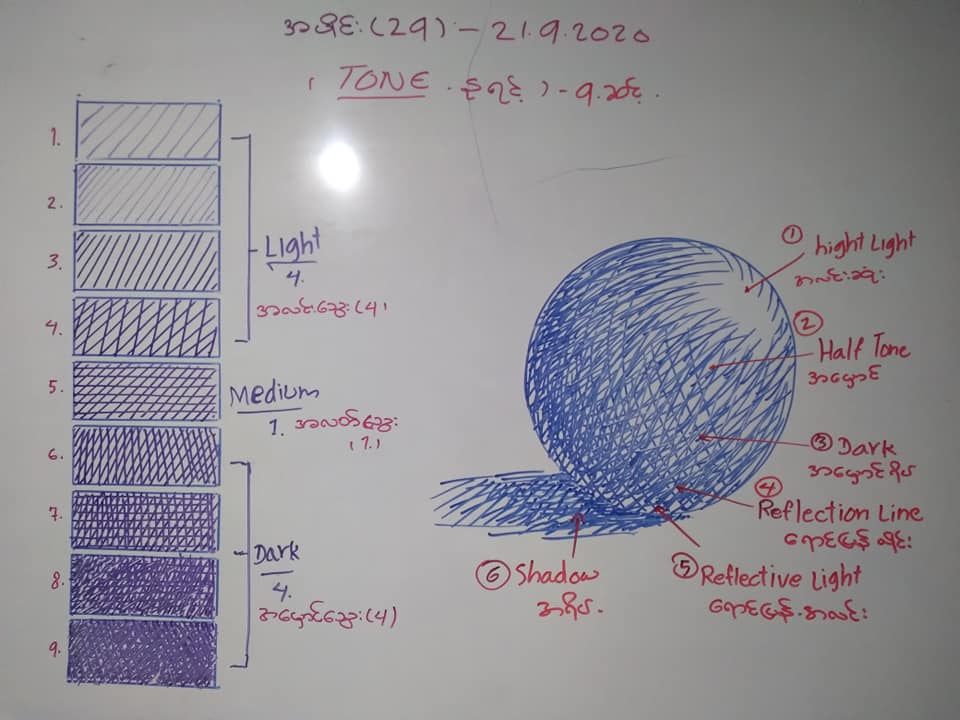 အပိုင်း (29) - 21.9.2020
( TONE . နုရင့် ) - ၅.ဆင့်.
1.
2.
3.
4.
5.
6.
7.
8.
9.
Light
4.
အလင်းသွေး (4)
Medium
1. အလတ်သွေး
(1.)
Dark
4.
အမှောင်သွေး (4)
① hight Light
အလင်းဆုံး
② Half Tone
အမှောင်
③ Dark
အမှောင်ရိပ်
④ Reflection Line
ရောင်ပြန်လိုင်း
⑤ Reflective Light
ရောင်ပြန်.အလင်း
⑥ Shadow
အရိပ်.